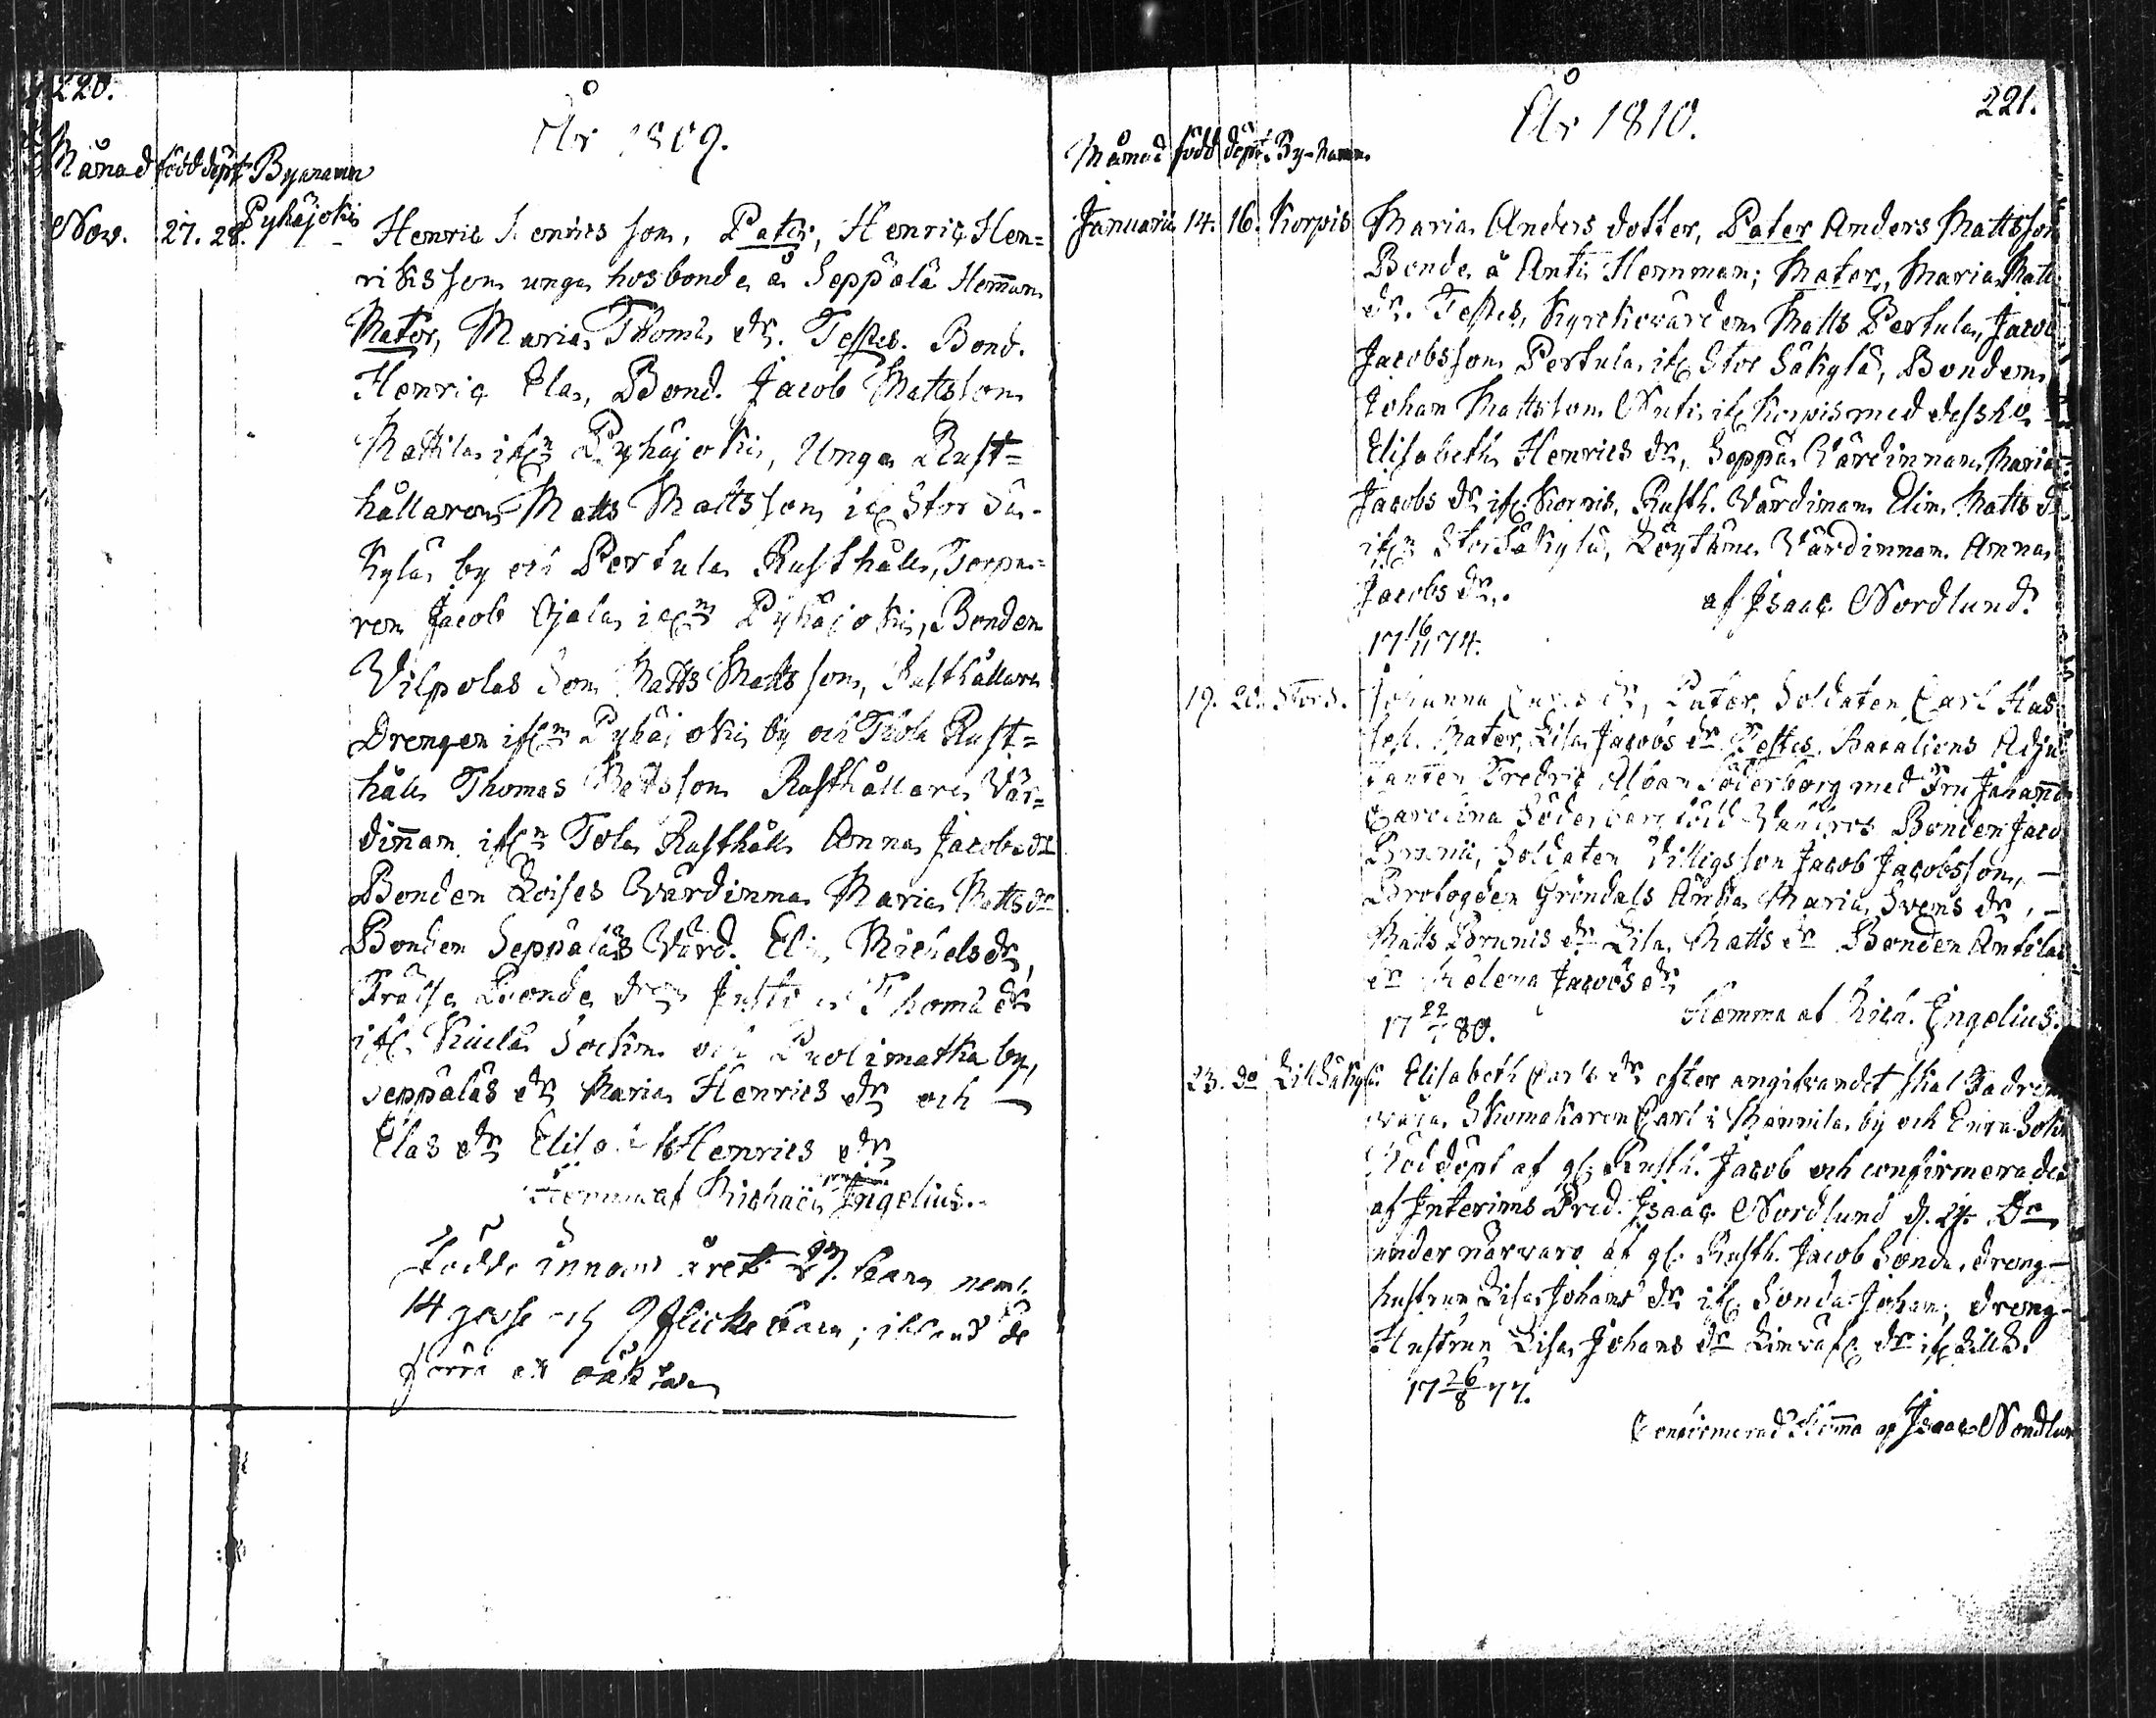 220.
År 1809.
Månad född döpt Bynamn
Nov. 27. 28. Pyhäjoki
Henric Henrics son, Pater, Henric Hen=
riksson unga hosbonde å Seppälä Hemman
Mater, Maria Thomæ dr. Testes. Bond.
Henric Elas, Bond. Jacob Mattsson
Mattila ifrn Pyhäjoki, Unga Rust=
hållaren Matts Mattsson ifr Stor Sä-
kylä by och Pertula Rusthåll, Torpa=
ren Jacob Ojala ifrn Pyhäjoki, Bonden
Vilpolas Son Matts Mattsson, Rusthållare
Drengen ifrn Pyhäjoki by och Tåla Rust=
håll Thomas Mattsson Rusthållare Vär=
dinnan ifrn Tola Rusthåll Anna Jacobs dr
Bonden Roises Wärdinna Maria Matts dr
Bonden Seppäläs Värd. Elin Michels dr,
Thomæ dr
ifr Kiula Sockn och by,
Seppäläs dr Maria Henrics dr och
Elas dr Elisabeth Henrics dr
Hemma af Michaël Ingelius.
Födde innom året 23. barn neml.
14 gosse och 9 flicke barn; ibland de
förra en oäkta
221.
År 1810.
Månad född döpt By-namn
Januarii 14. 16. Korpis
Maria Anders dotter, Pater Anders Mattsson
Bonde å Anti Hemman; Mater, Maria Matts
dr. Testes, Kyrkovärden Matts Pertula, Jacob
Jacobsson Pertula ifr Stor Säkylä, Bonden
Johan Mattsson Anti ifr Korpis med dess hu
Elisabeth Henrics dr, Seppä Värdinnan Maria
Jacobs dr ifr Korpis, Rusth. Värdinnan Elin Matts dr
ifrn Stor Säkylä, Löytäne Värdinnan Anna
Jacobs dr. af Isaac Nordlund.
17 16/11 74.
19. 20. Stor S.
Johanna Carls dr, Pater, Soldaten Carl Has
sel. Mater, Lisa Jacobs dr Testes. Bataliens Adju
tanten Fredric Alban Söderborg med Fru Johanna
Carolina Söderborg född Bonden Jacob
Brunii, Soldaten Villigs son Jacob Jacobsson,
Profogden Gröndals Änka Maria Svens dr,
Matts Brunis dr Lisa Matts dr Bonden Antilas
dr Helena Jacobs dr
17 22/7 80. Hemma af Mich. Ingelius.
23. do Lill Säkylä
Elisabeth Carls dr efter angifvandet skal Fadren
vara Skomakaren Carl i Mannila by och Eura Sokn
Nöddöpt af gl. Rusth. Jacob och confirmerades
af Interims Pred. Isaac Nordlund d. 24. do
under närvaro af gl. Rusth. Jacob Sonda, dreng-
hustrun Lisa Johans dr ifr Sonda Johan, dreng-
Hustrun Lisa Johans dr dr ifr Lill S.
17 26/8 77.
Confirmerad Hemma af Isaac Nordlun